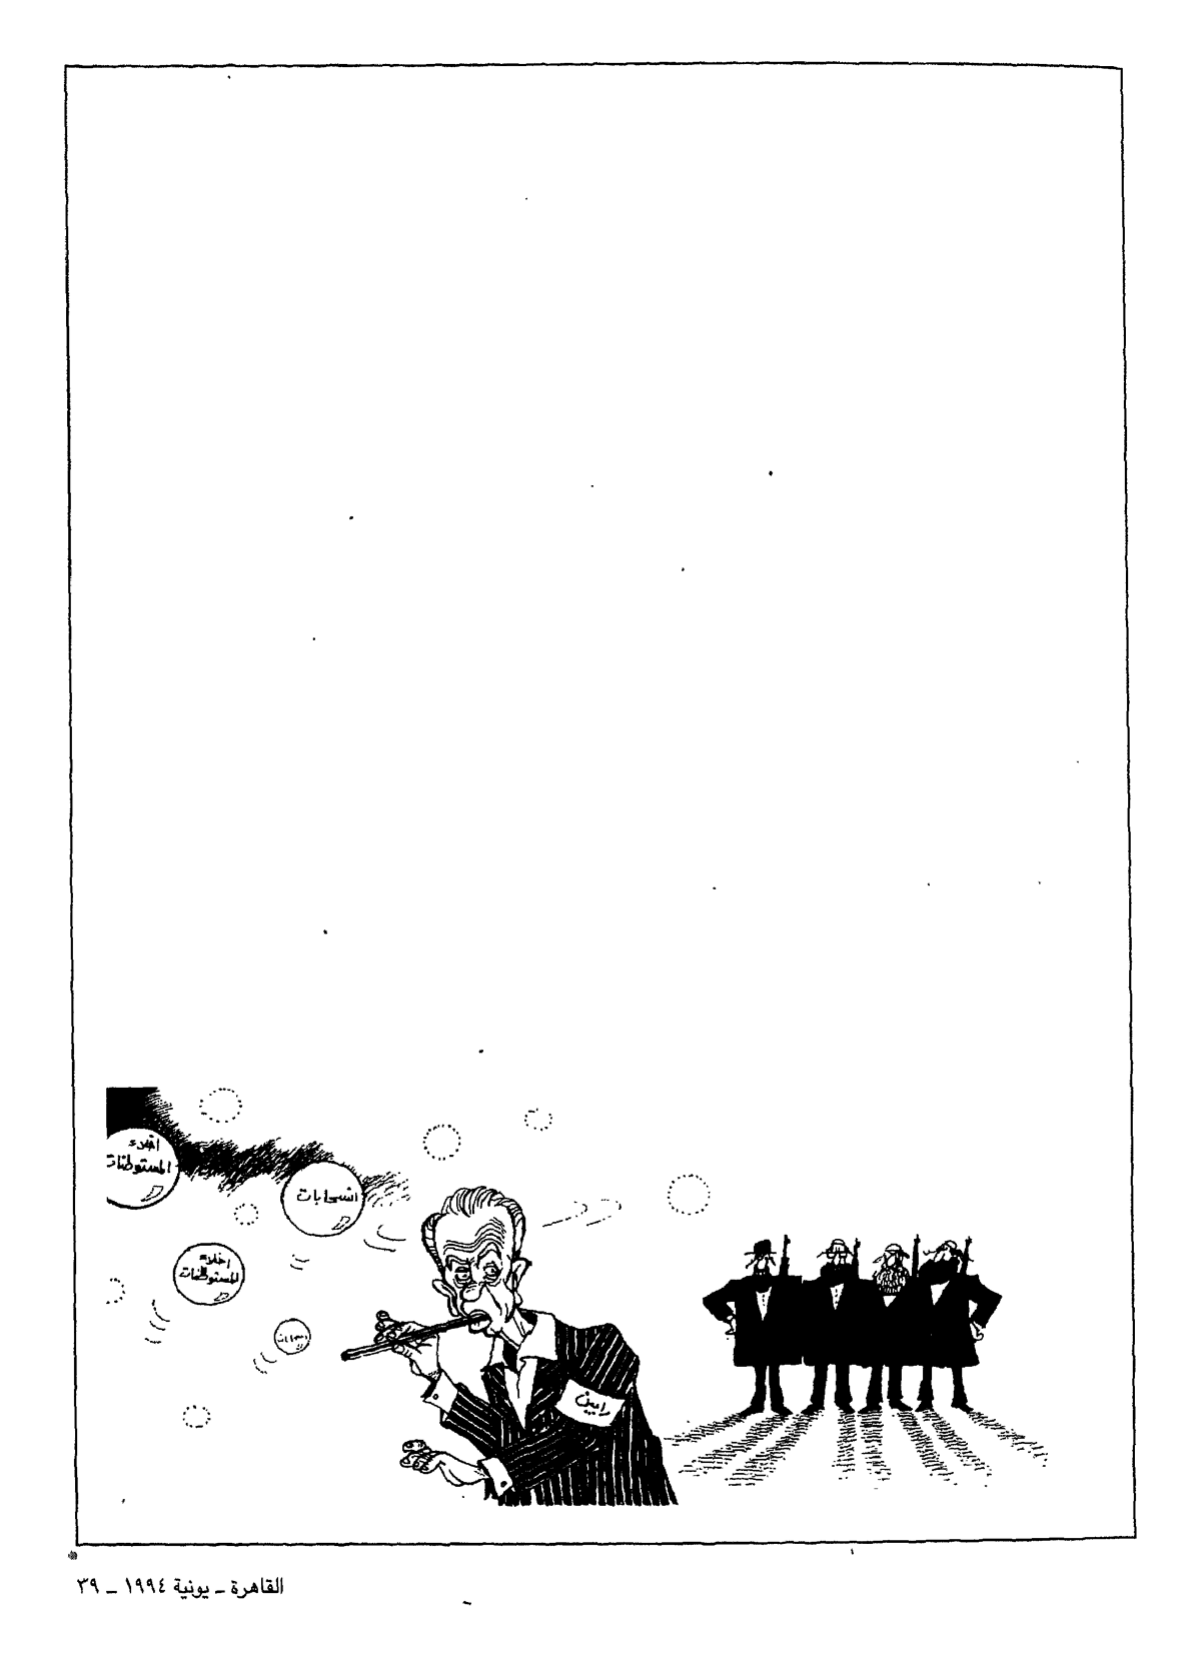 اخلاء
المستوطنات
انسحابات
اخلاء
المستوطنات
انسحابات
رابين
القاهرة ـ يونية ١٩٩٤ ـ ٣٩